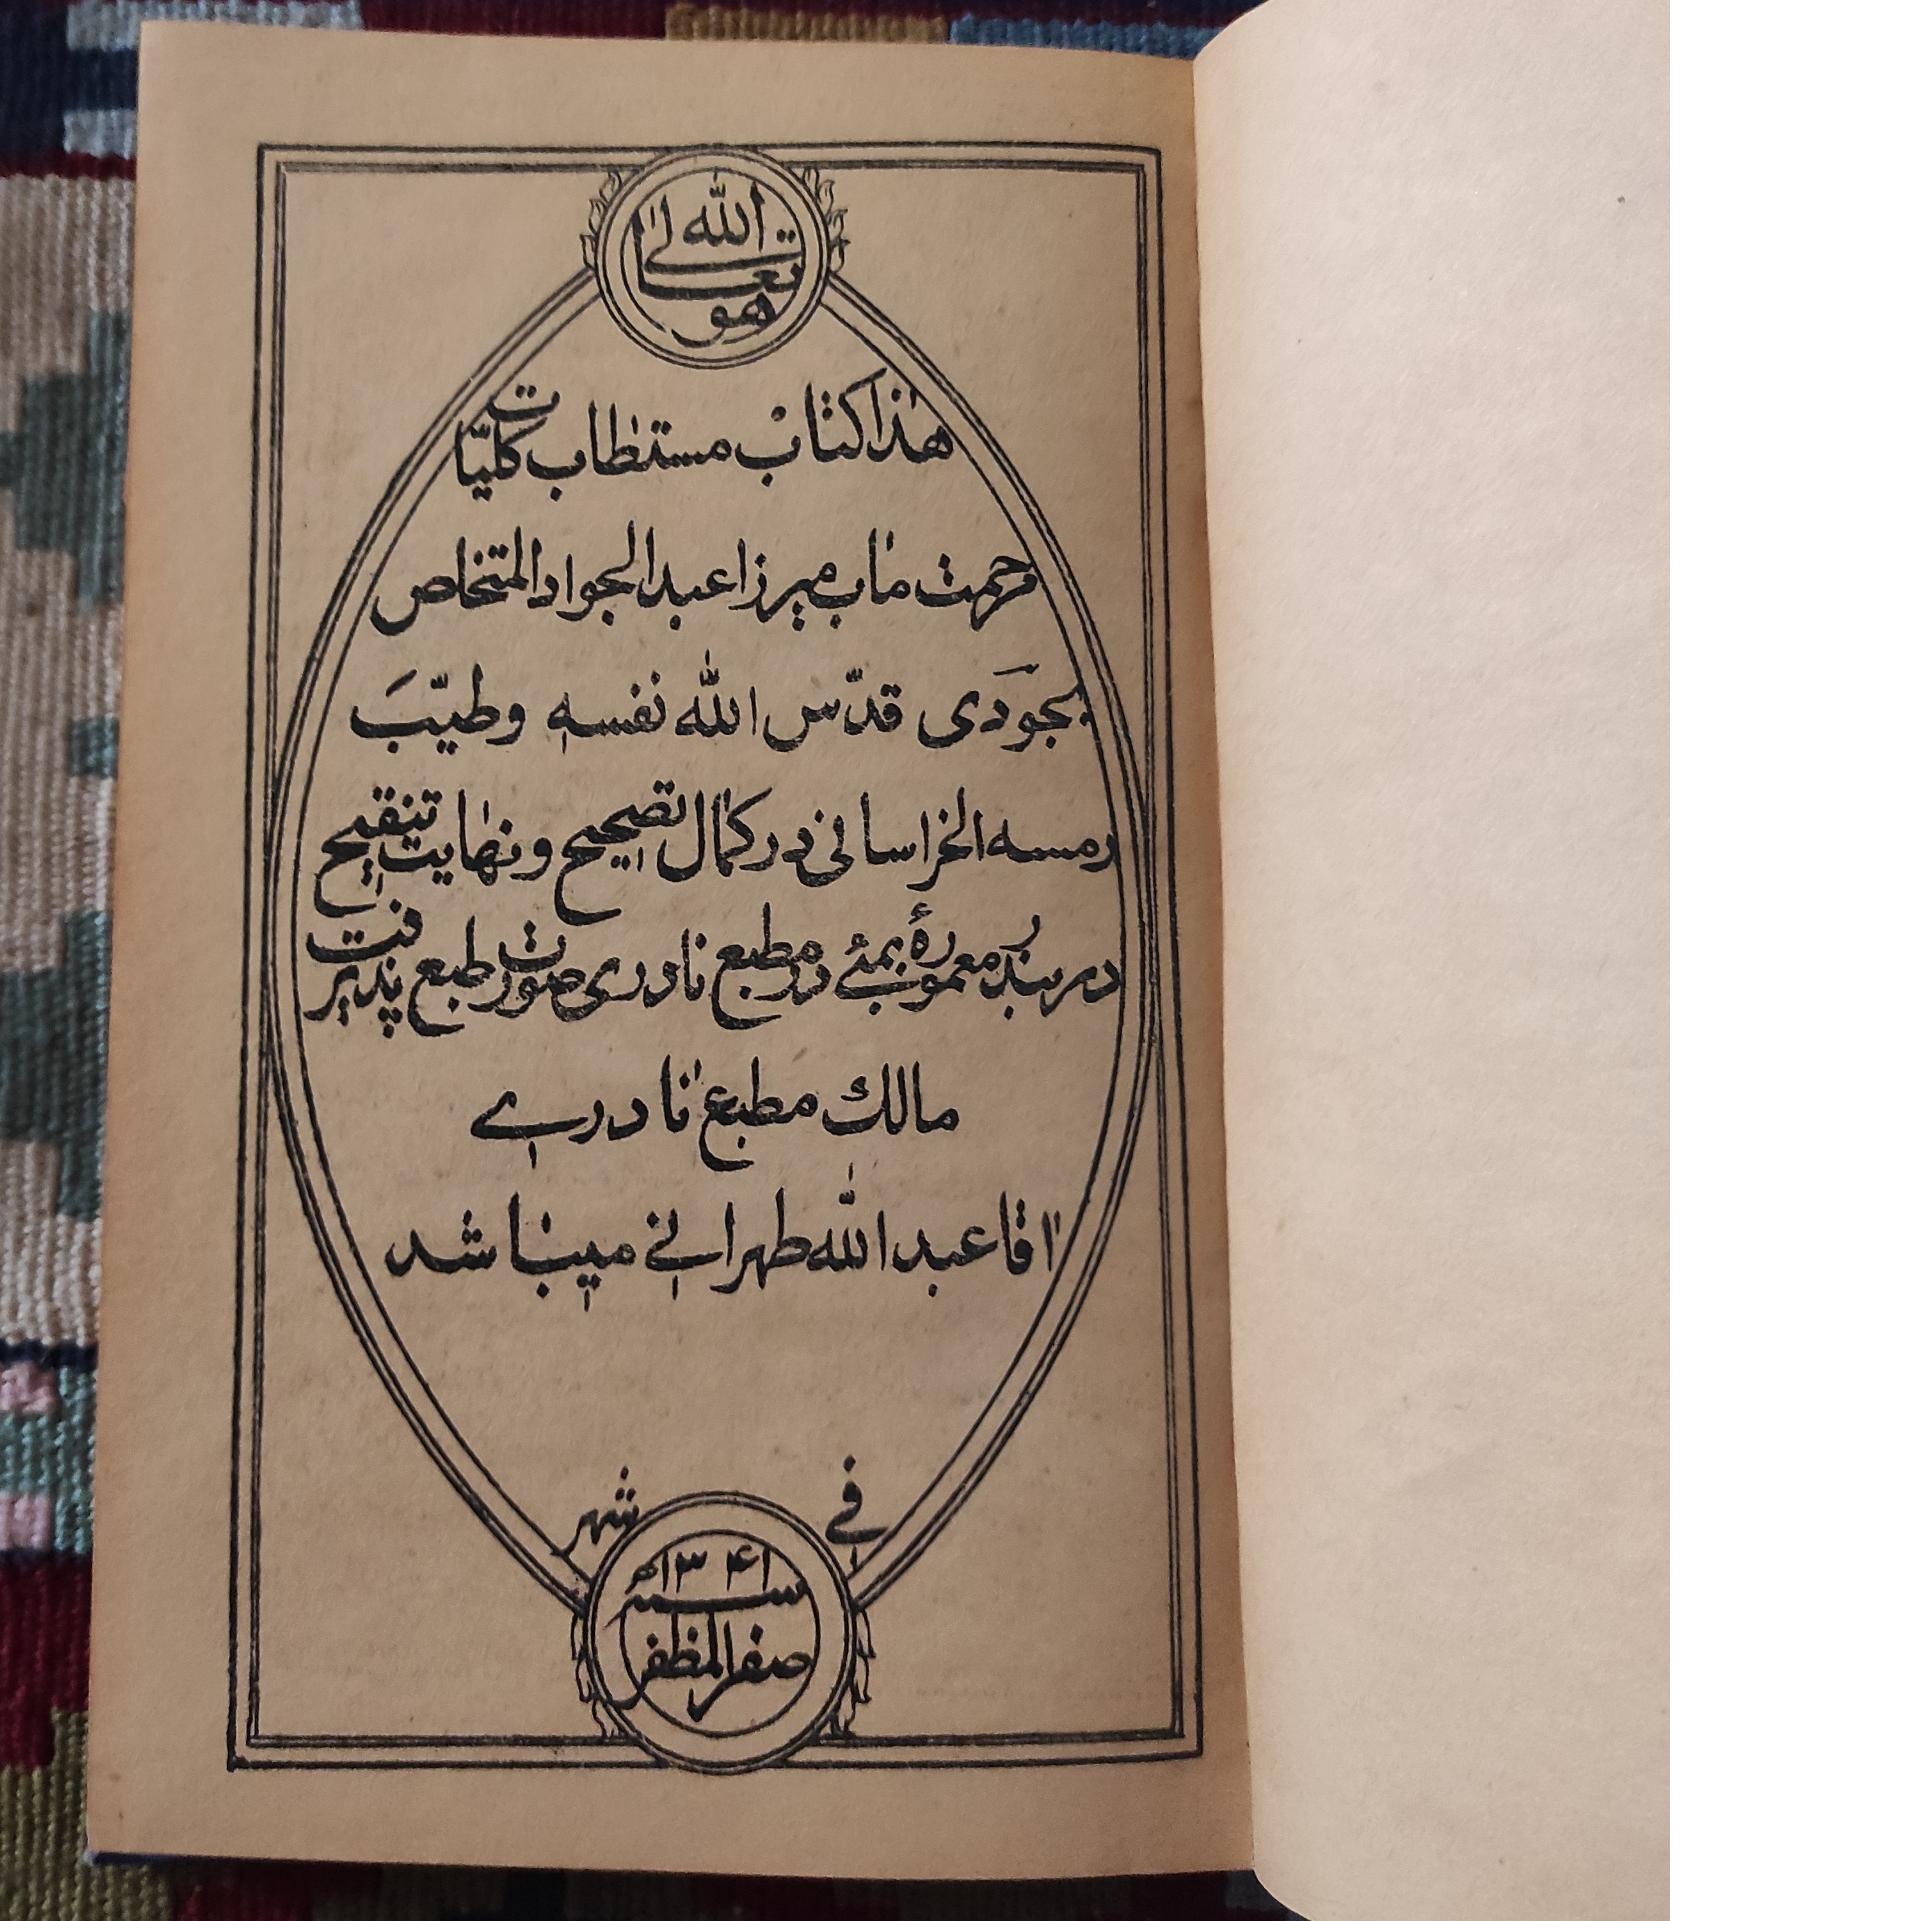 هو الله تعالی
هذا کتاب مستطاب کلیّات
مرحمت مٰاب میرزا عبد الجواد المتخلص
بجَودَی قدّس الله نفسه و طیّبَ
رمسه الخراسانی در کمال تصحیح و نهایت تنقیح
در بندر معمورهٔ بمبئی در مطبع نادری صورت طبع پذیرفت
مالک مطبع نادری
اقا عبد الله طهرانی میباشد
فی شهر
سنه ۱۳۴۱
صفر المظفر